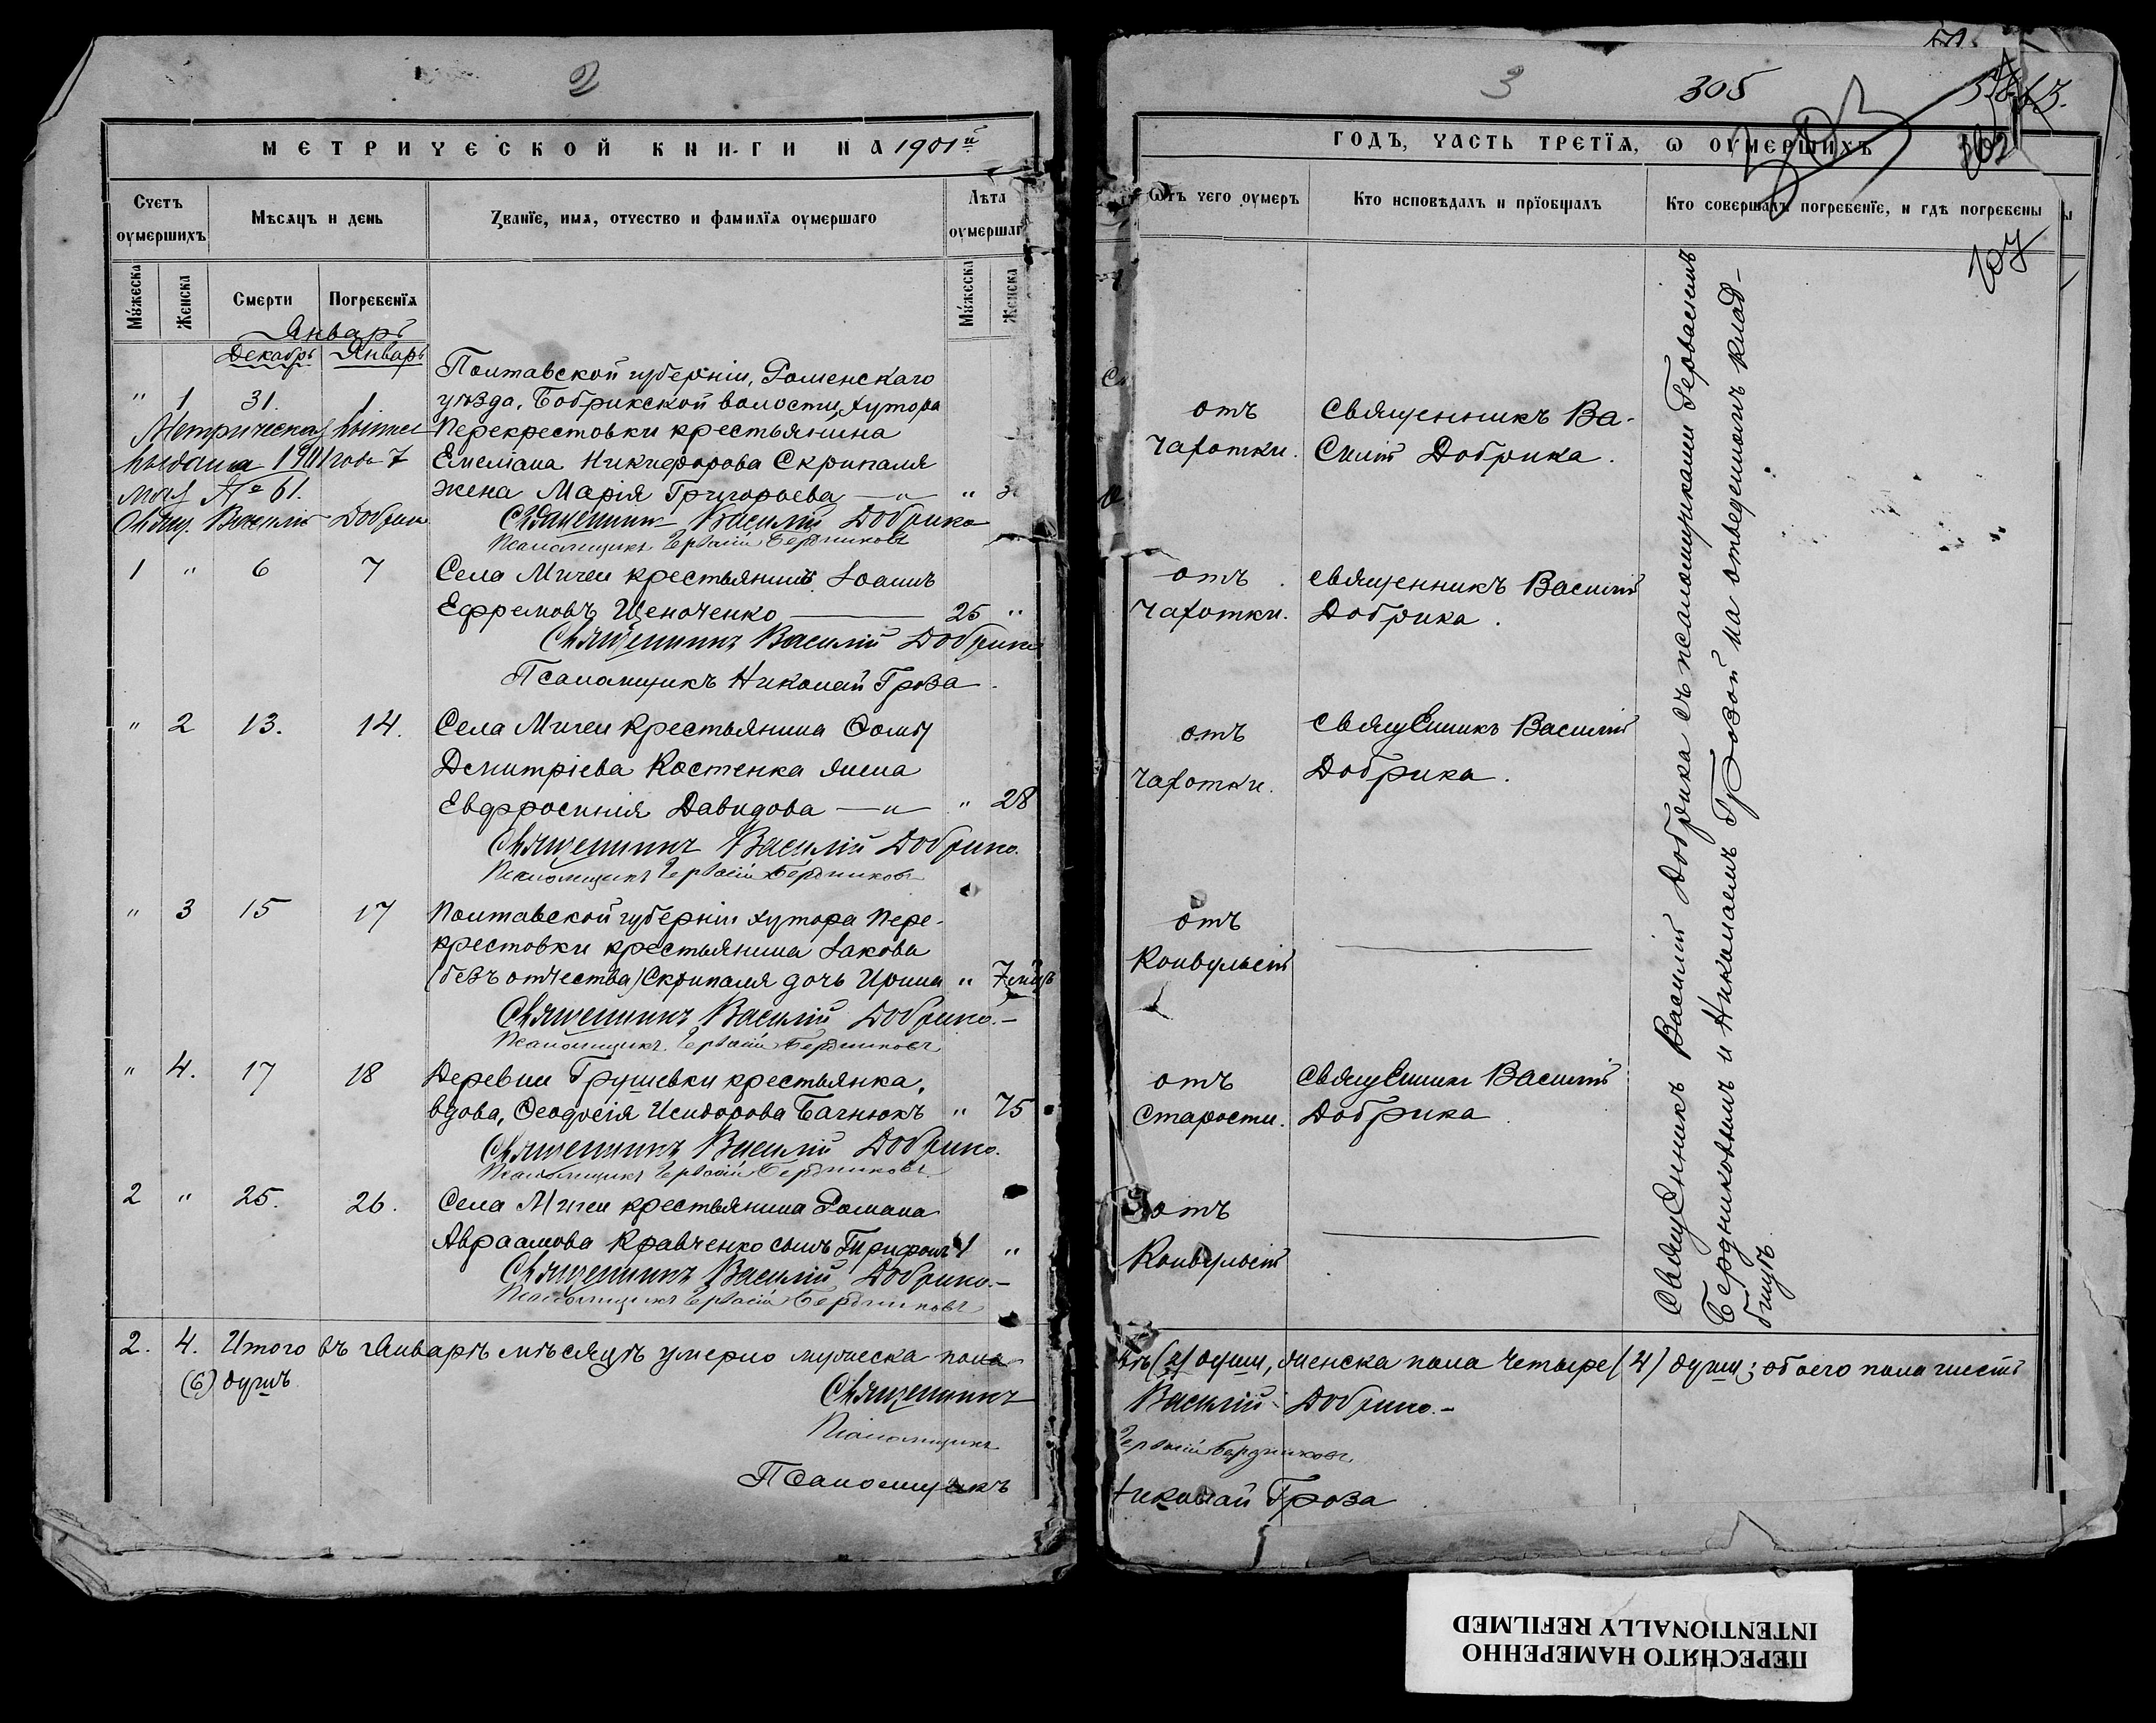 2
МЕТРИЧЕСКОЙ КНИГИ НА 1901й
Счетъ оумершихъ
Мѣсяцъ и день
Званїе, имя, отчество и фамилїя оумершаго
Лѣта оумершаг
Мужеска
Женска
Смерти
Погребенїя
Мужеска
Женска
Январь
Декабрь Январь
" 1 31. 1
Полтавской губерніи, Роменскаго
уѣзда, Бобрикской волости, хутора
Перекрестовки крестьянина
Емеліана Никифорова Скрипаля
жена Марія Григорьева — " — "
Священникъ Василій Добрика
Псаломщикъ Гервасій Бердниковъ
Метрическая
выдана 1901 года 7
№ 61.
Свящ. Василій Добрик
1 " 6 7
Села Мигеи крестьянинъ Іоаннъ
Ефремовъ Щеноченко — 25 "
Священникъ Василій Добрика
Псаломщикъ Николай Гроза.
" 2 13. 14.
Села Мигеи крестьянина Ѳомы
Димитріева Костенка жена
Евфросинія Давидова — " — " 28
Священникъ Василій Добрика.
Псаломщикъ Гервасій Бердниковъ
" 3 15 17
Полтавской губерніи хутора Пере-
крестовки крестьянина Іакова
(безъ отчества) Скрипаля дочь Ирина " 7 мѣс
Священникъ Василій Добрика.—
Псаломщикъ Гервасій Бердниковъ
" 4. 17 18
Деревни Грушевки крестьянка,
вдова, Ѳеодосія Исидорова Багнюкъ " 75
Священникъ Василій Добрика.
Псаломщикъ Гервасій Бердниковъ
2 " 25. 26.
Села Мигеи крестьянина Романа
Авраамова Кравченко сынъ Трифонъ 1 "
Священникъ Василій Добрика.—
Псаломщикъ Гервасій Бердниковъ
2. 4. Итого въ Январѣ мѣсяцѣ умерло мужеска пола
(6) душъ.
Священникъ
Псаломщикъ
Псаломщикъ
3 305
107
ГОДЪ, ЧАСТЬ ТРЕТЇЯ, Ѡ ОУМЕРШИХЪ
Ѿтъ чего оумеръ
Кто исповѣдалъ и прїобщалъ
Кто совершалъ погребенїе, и гдѣ погребены
отъ
чахотки.
Священникъ Ва-
силій Добрика.
отъ
чахотки.
Священникъ Василій
Добрика.
отъ
чахотки.
Священникъ Василій
Добрика.
отъ
Конвульсій
отъ
Старости.
Священникъ Василій
Добрика
отъ
Конвульсій
Священникъ Василій Добрика съ псаломщиками Гервасіемъ
Бердниковымъ и Николаемъ Грозой на отведенномъ клад-
бищѣ.
(2) души, женска пола четыре (4) души; обоего пола шесть
Василій Добрика.—
Гервасій Бердниковъ
Николай Гроза
ПЕРЕСНЯТО НАМЕРЕННО
INTENTIONALLY REFILMED